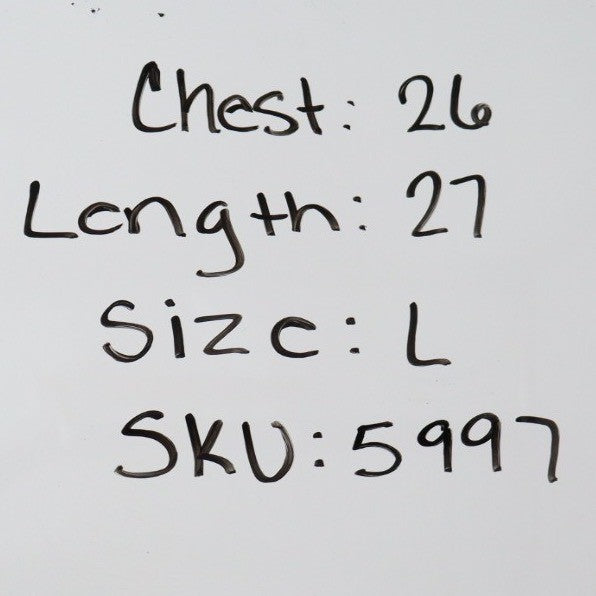 Chest: 26
Length: 27
Size: L
SKU: 5997